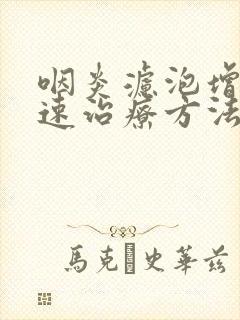 咽炎濾泡增
速治療方法
馬克 史華茲